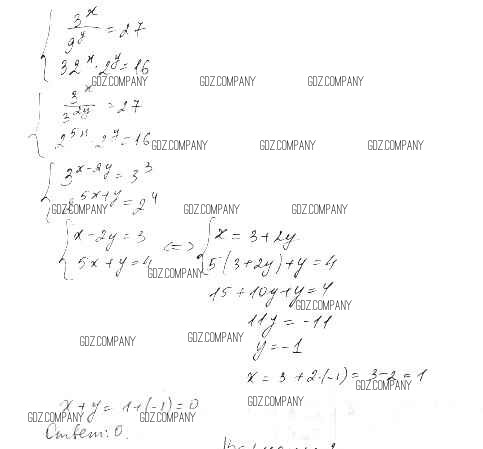 3^x / 9^y = 27
32^x · 2^y = 16
GDZ.COMPANY GDZ.COMPANY GDZ.COMPANY
3^x / 3^2y = 27
2^5x · 2^y = 16
GDZ.COMPANY GDZ.COMPANY GDZ.COMPANY
3^x-2y = 3^3
2^5x+y = 2^4
GDZ.COMPANY GDZ.COMPANY GDZ.COMPANY
x - 2y = 3 <=> x = 3 + 2y
5x + y = 4 5(3+2y) + y = 4
GDZ.COMPANY
15 + 10y + y = 4
GDZ.COMPANY
11y = -11
GDZ.COMPANY GDZ.COMPANY
y = -1
x = 3 + 2·(-1) = 3-2 = 1
GDZ.COMPANY
x + y = 1 + (-1) = 0
GDZ.COMPANY
GDZ.COMPANY GDZ.COMPANY
Ответ: 0.